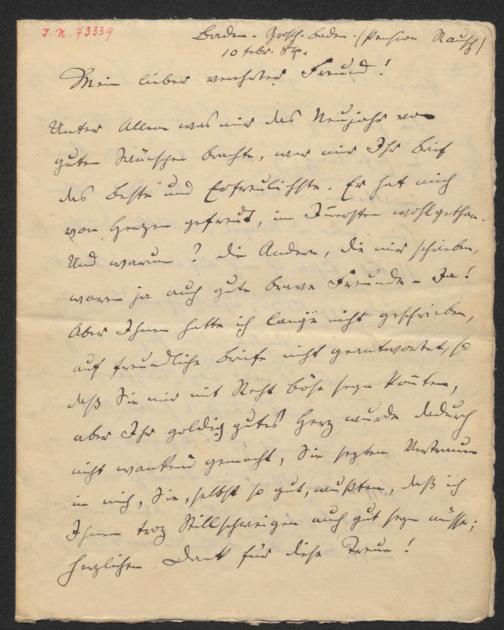 J.N. 73339
Baden - Großh. Baden. (Pension Rausch)
10 febr. 84.
Mein lieber verehrter Freund!
Unter Allem was mir das Neujahr von
guten Wünschen brachte, war mir Ihr Brief
das Beste und Erfreulichste. Er hat mich
von Herzen gefreut, im Innersten wohlgethan.
Und warum? die Andern, die mir schrieben,
waren ja auch gute brave Freunde - Ja!
Aber Ihnen hatte ich lange nicht geschrieben,
auf freundliche Briefe nicht geantwortet, so
daß Sie mir mit Recht böse seyn könten,
aber Ihr goldig gutes Herz wurde dadurch
nicht wankend gemacht, Sie sezten Vertrauen
in mich, Sie, selbst so gut, wußten, daß ich
Ihnen troz Stillschweigen auch gut seyn müsse;
herzlichen Dank für diese Treue!